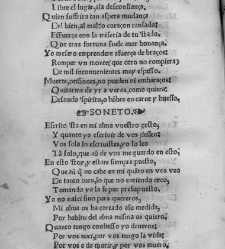 Libre el lugar, a la desconfiança,
Quien suffrira tan aspera mudança
Del bien, al mal? o coraçon cansado:
Esfuerça con la miseria de tu estado,
Que tras fortuna suele auer bonança.
Yo mesmo emprendere a fuerça de braços:
Romper vn monte, que otro no rompiera;
De mil inconuenientes muy espesso.
Muerte, prisiones, no pueden, ni embaraços:
Quitarme de yr a veros, como quiera:
Desnudo spirito, o hōbre en carne y huesso,
SONETO.
Escrito sta en mi alma vuestro gesto,
Y quanto yo escriuir de vos desseo:
Vos sola lo escriuistes, yo lo leo
Tā solo, que aū de vos me guardo en esto;
En esto stoy, y estare siempre puesto,
Que aū q̄ no cabe en mi quāto en vos veo
De tanto bien, lo que no entiendo creo,
Tomando ya la fe por presupuesto,
Yo no naci sino para quereros,
Mi alma os ha cortado a su medida,
Por habito del alma misma os quiero;
Quanto tengo confiesso yo deueros:
Por vos naci, por vos tengo la vida:
Por vos e de morir, y por vos muero,